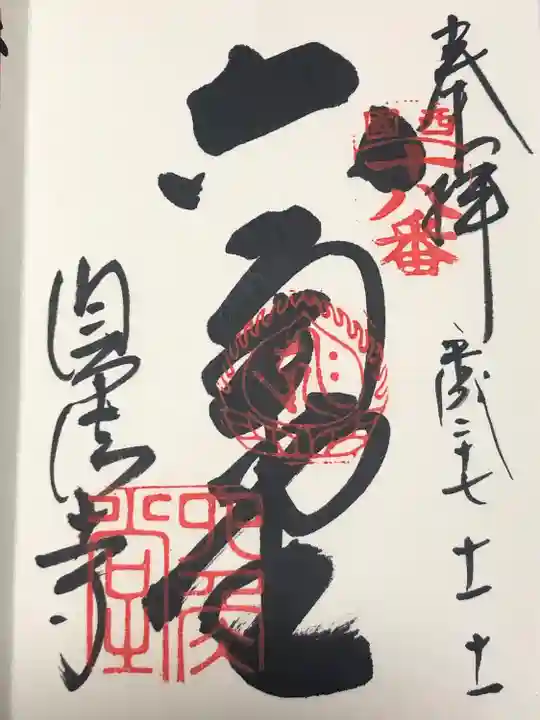 奉拝
平成二十七 十一 十一
西國
十八番
六角堂
六角堂
頂法寺